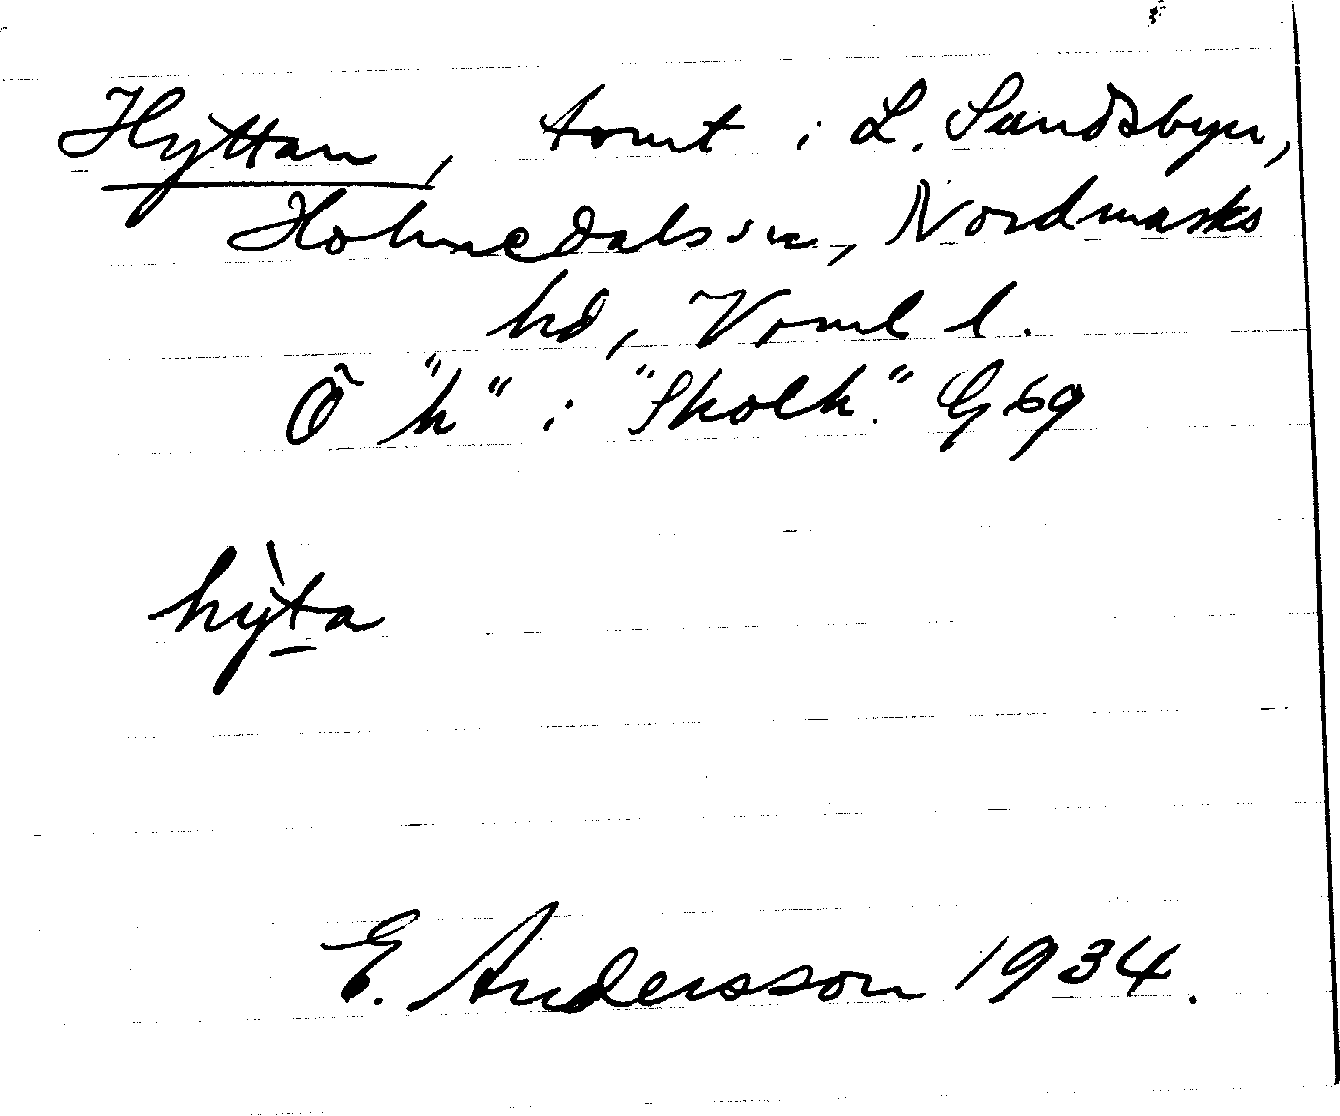 Hyttan, tomt i L. Sandsbyn,
Holmedals sn, Nordmarks
hd, Vrml l.
Ö "k" i "Skolk." G 69
hy̆̀ta
E. Andersson 1934.